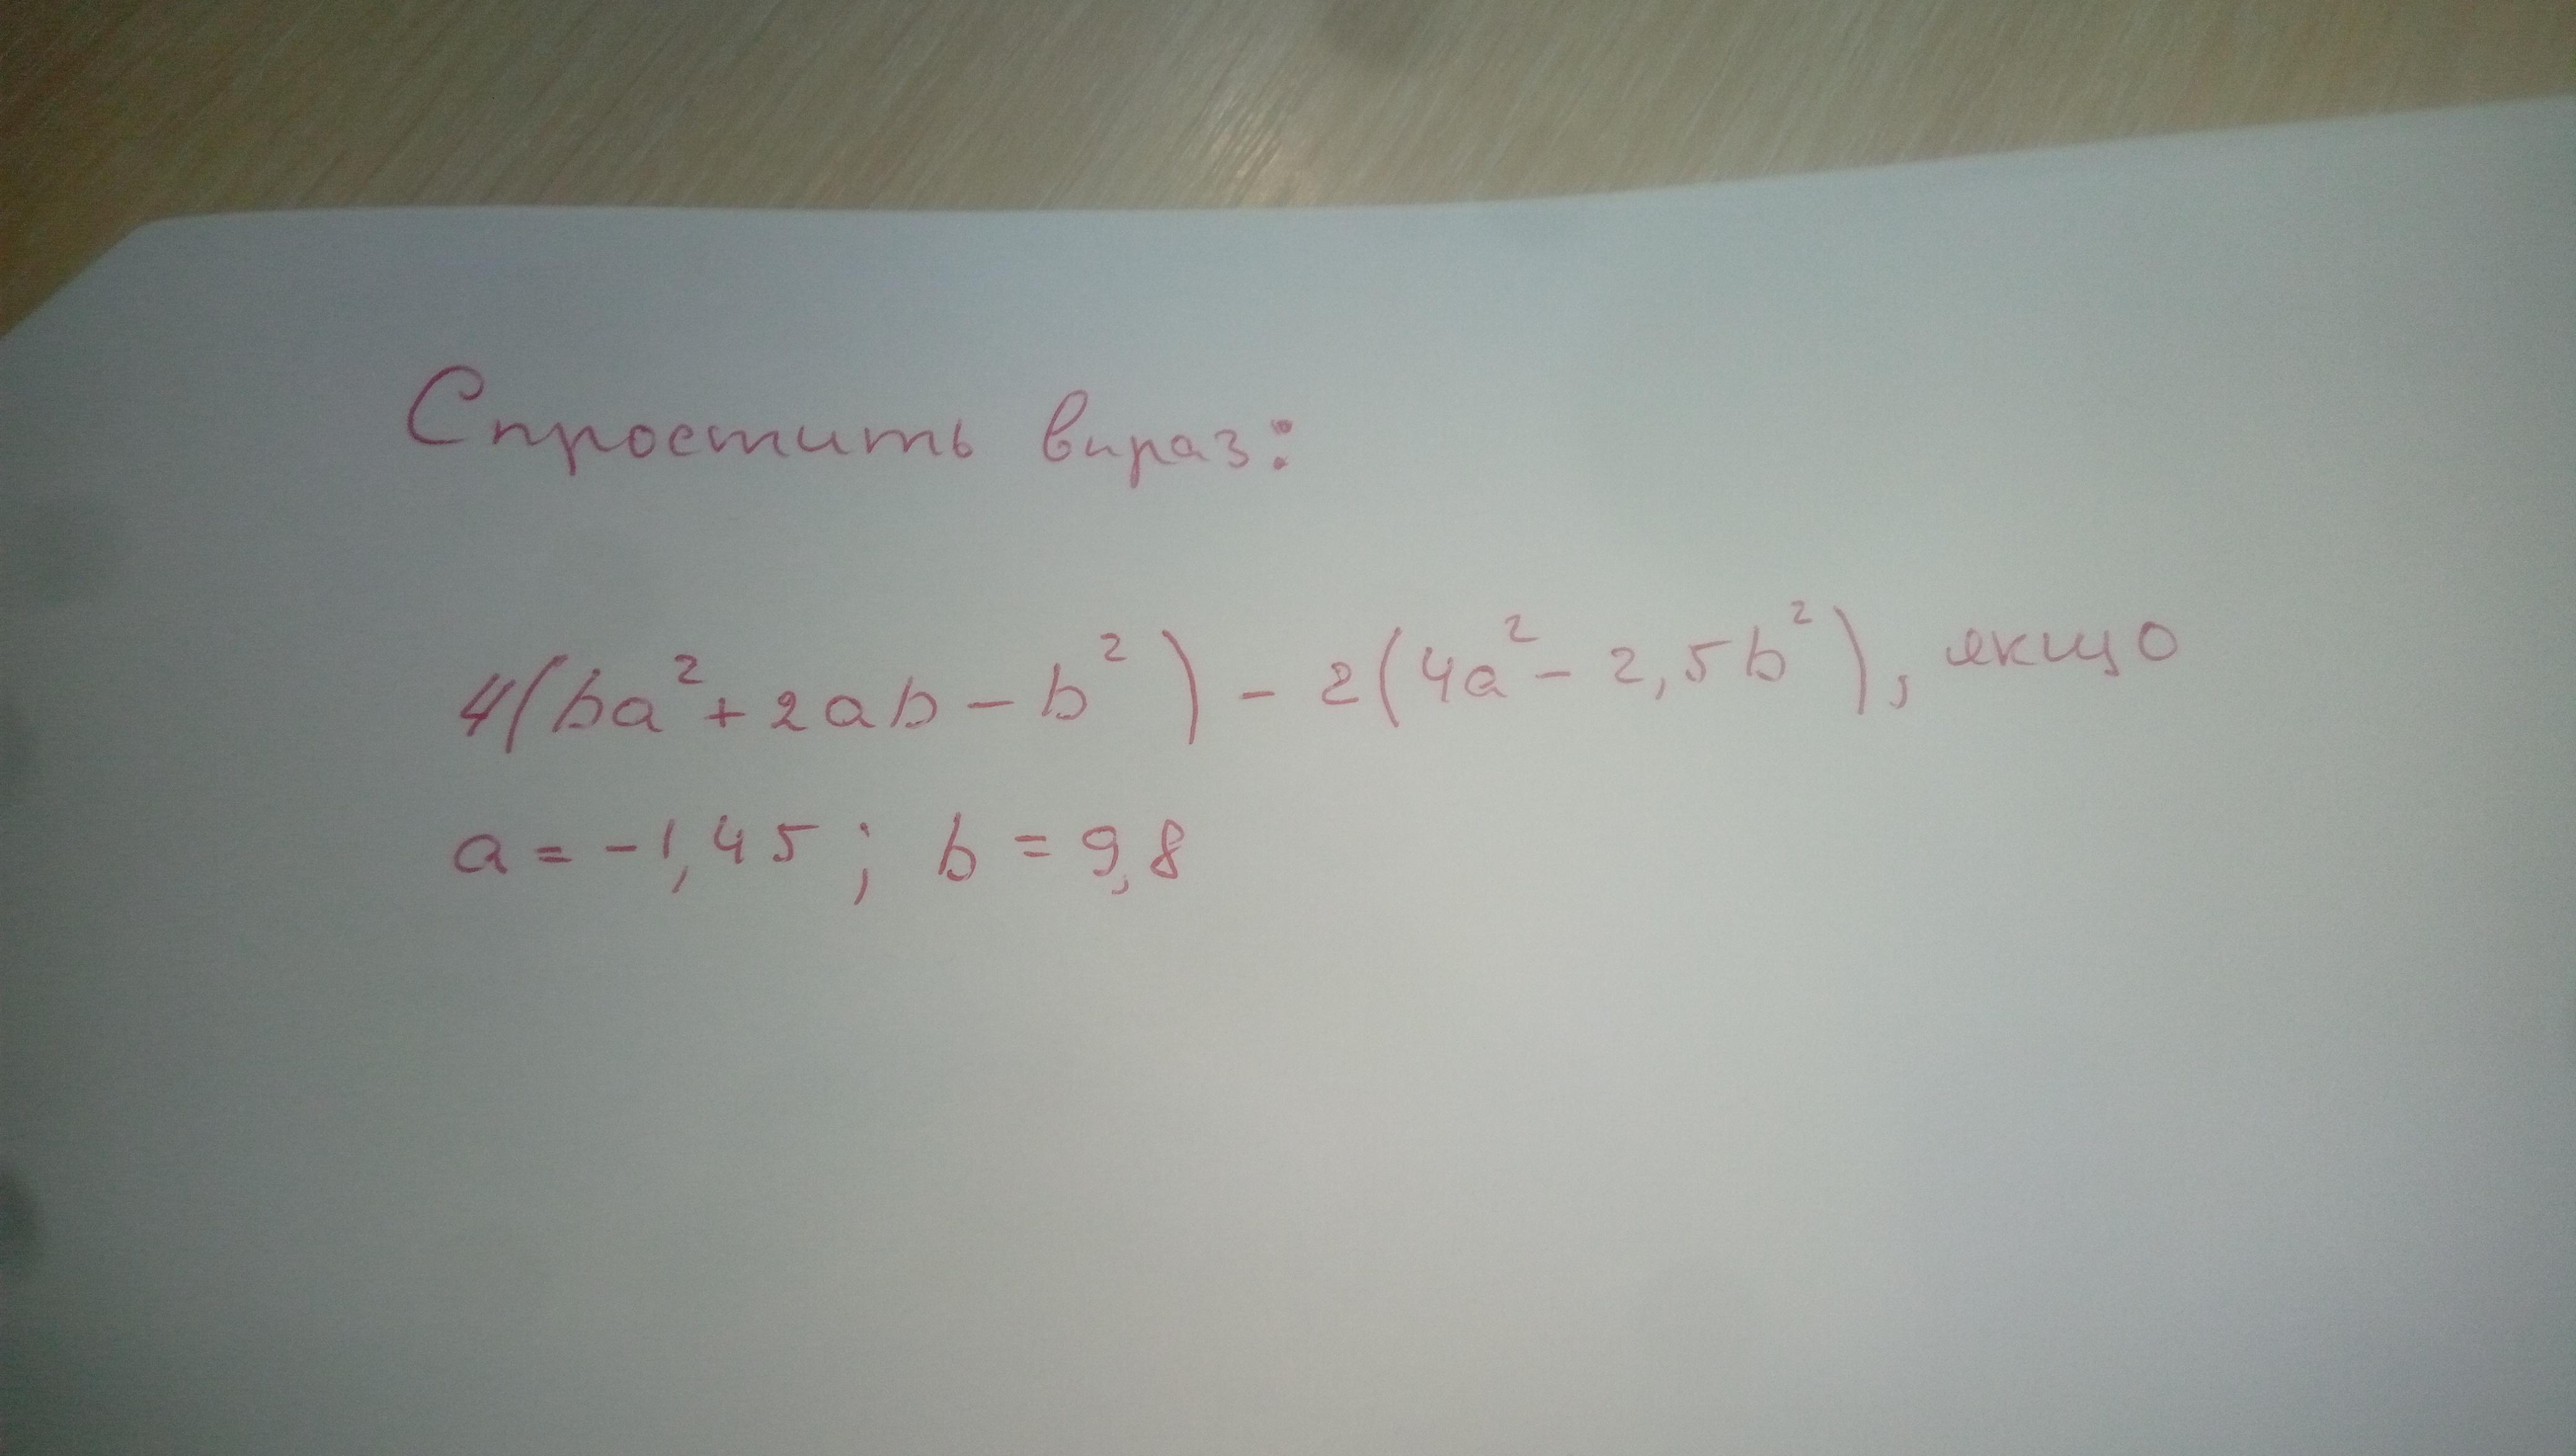 Спростить вираз:
4(ba²+2ab-b²)-2(4a²-2,5b²), якщо
a=-1,45; b=9,8